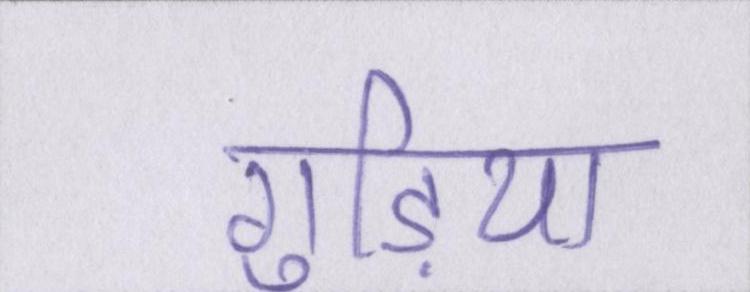 गुड़िया